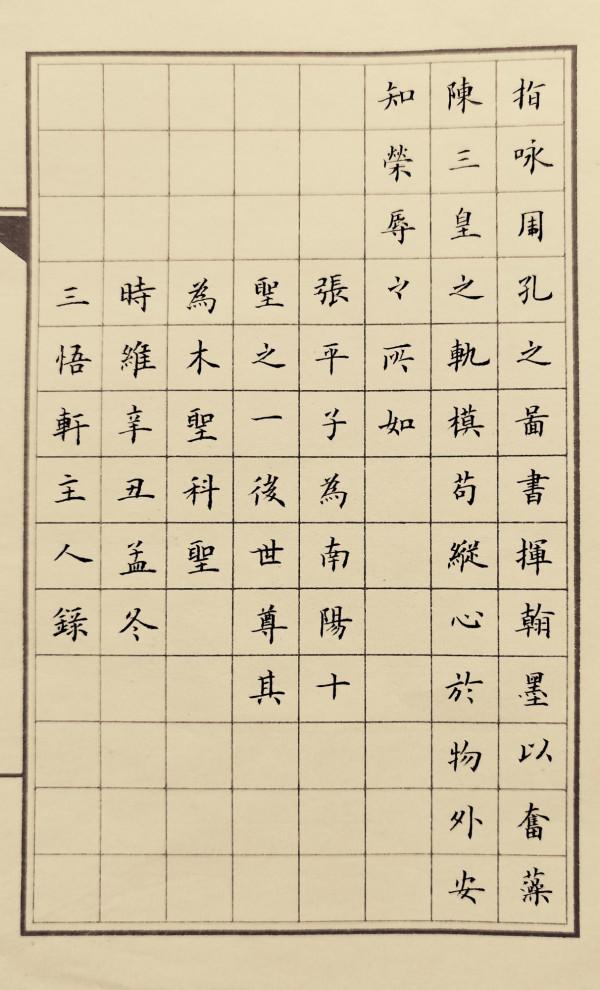 指咏周孔之圖書揮翰墨以奮藻
陳三皇之軌模苟縱心於物外安
知榮辱之所如
張平子為南陽十
聖之一後世尊其
為木聖科聖
時維辛丑孟冬
三悟軒主人錄